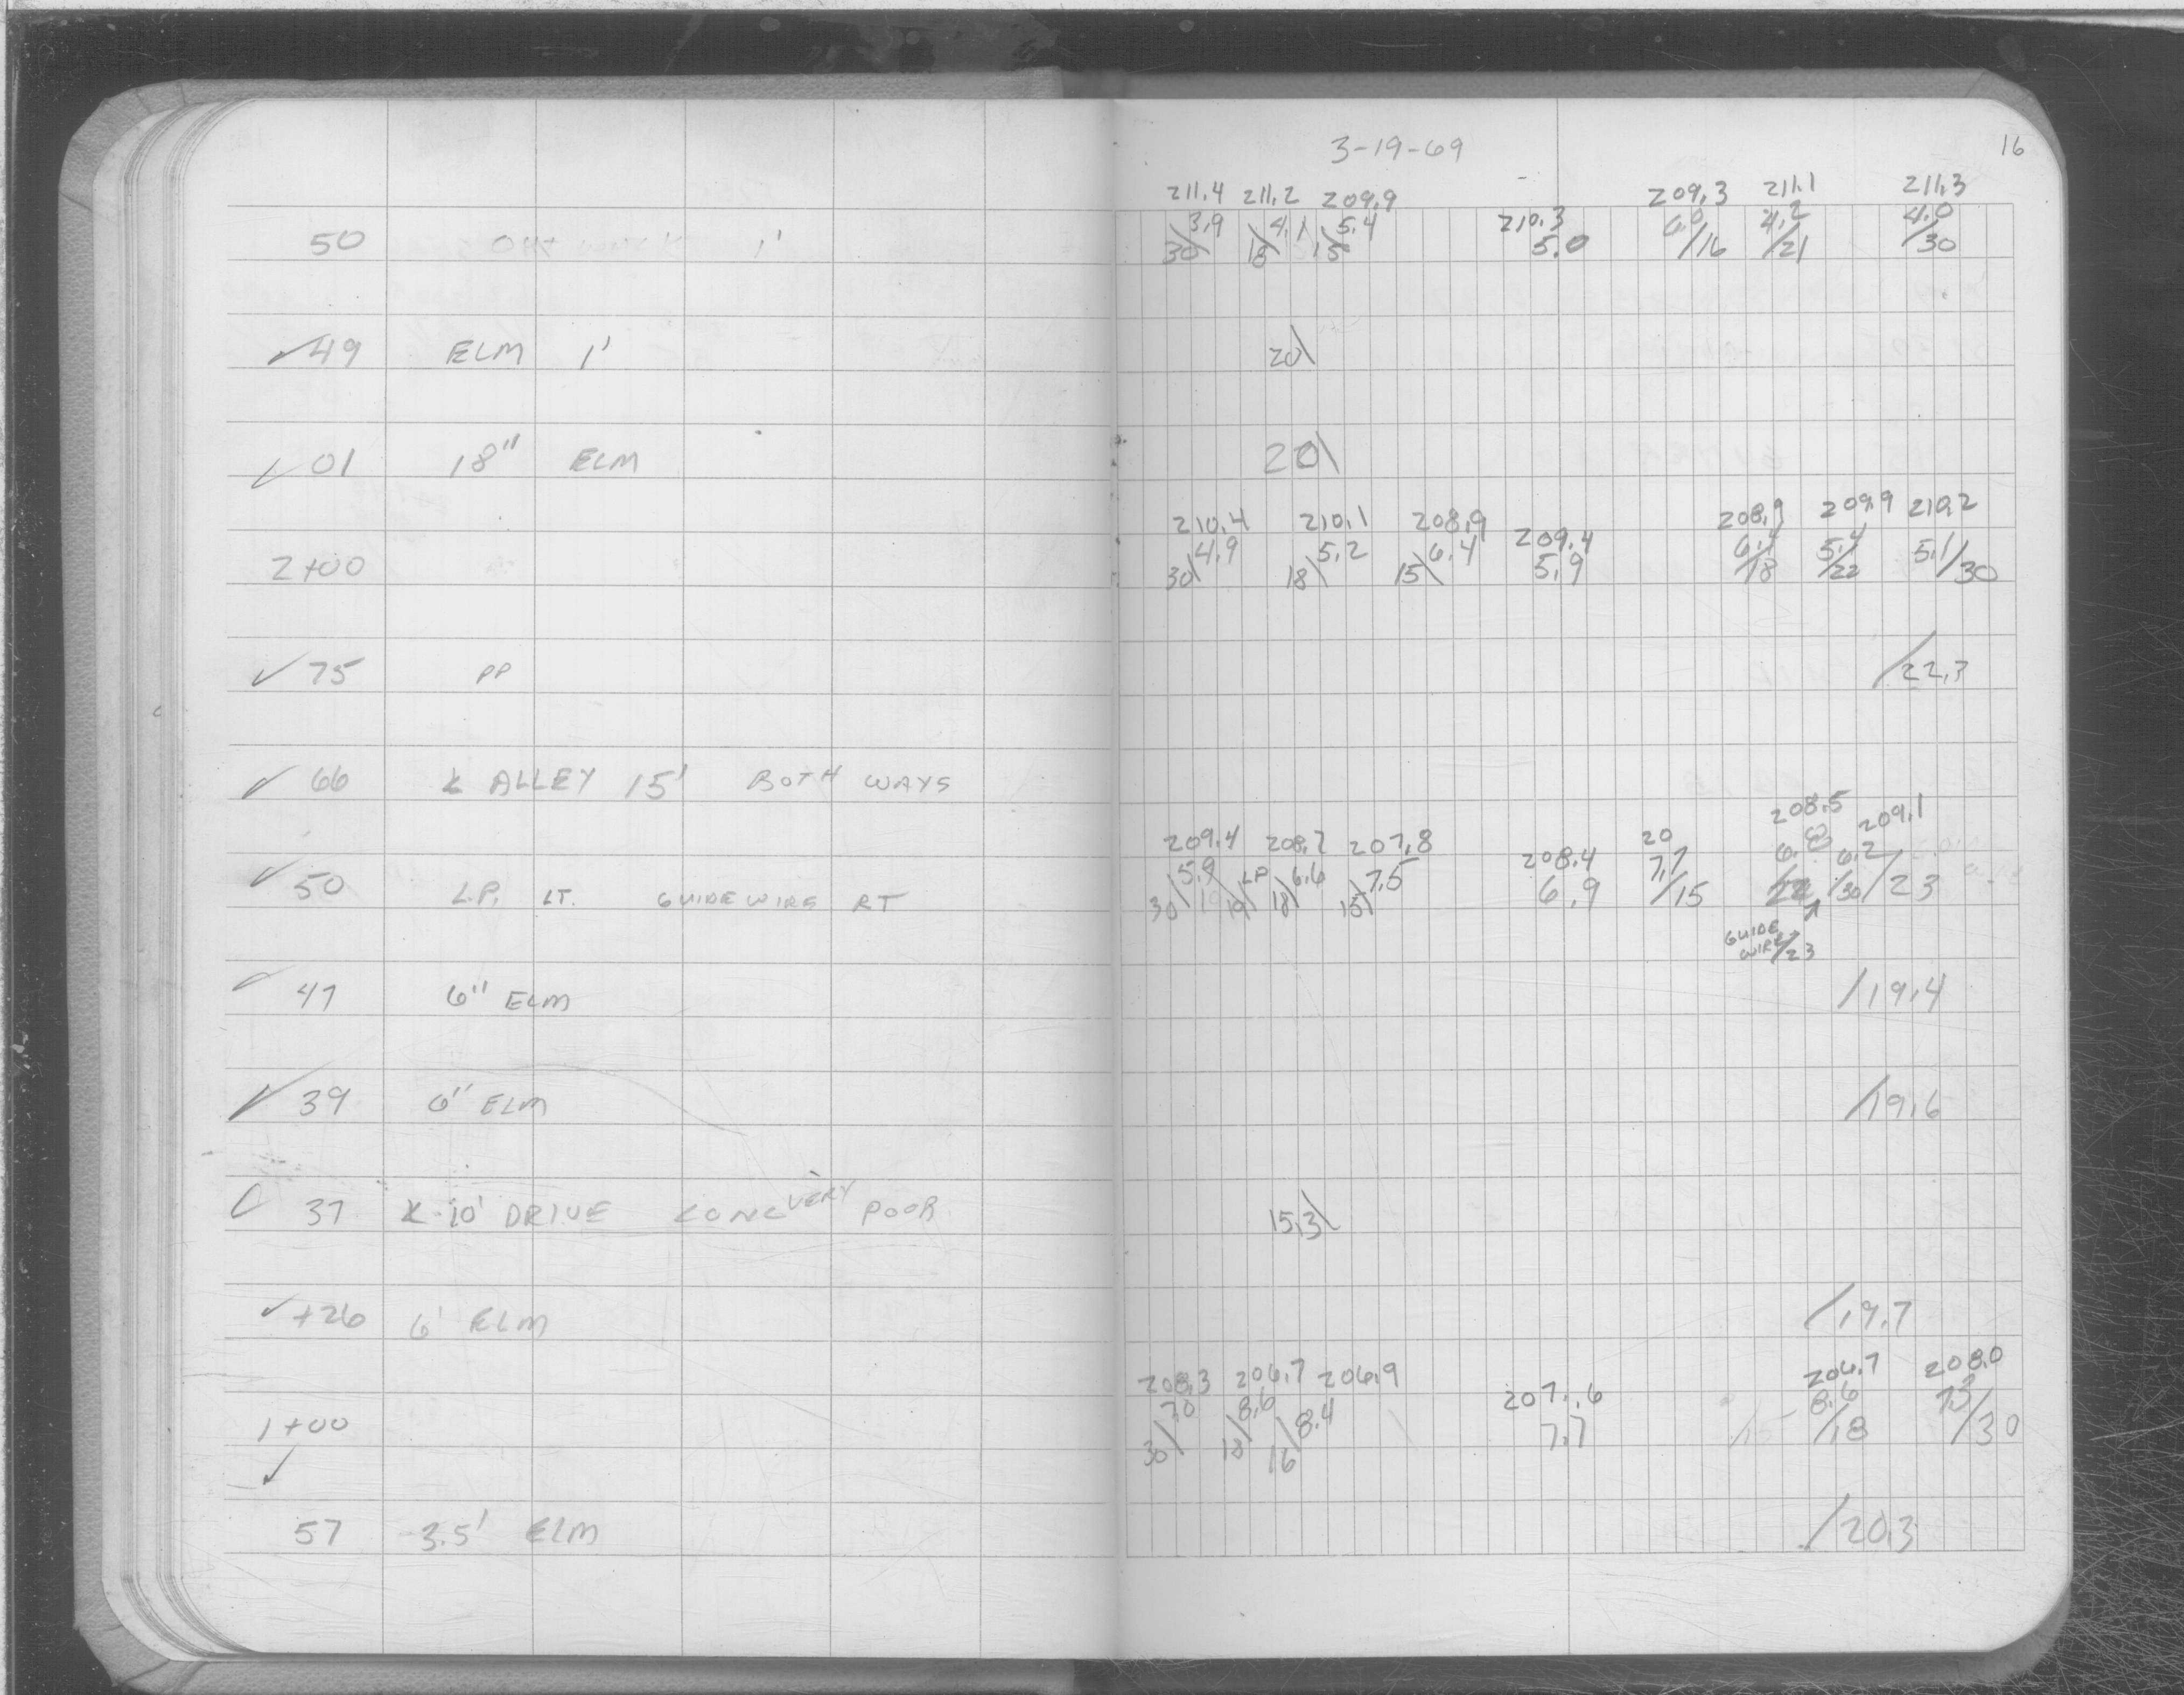 3-19-69
16
211.4 211.2 209.9 209.3 211.1 211.3
3.9 4.1 5.4 210.3 6.0 4.2 4.0
50 1' 30\ 18\ 15\ 5.0 /16 /21 /30
✓49 ELM 1' 20\
✓01 18" ELM 20\
210.4 210.1 208.9 209.4 208.9 209.9 210.2
4.9 5.2 6.4 5.4
2+00 30\ 18\ 15\ 5.9 /18 /22 5.1/30
✓75 PP /22.3
✓66 ALLEY 15' BOTH WAYS
208.5 209.1
209.4 208.7 207.8 208.4 20
5.9 LP 6.6 7.5 7.7 6.8 6.2
✓50 L.P. LT. GUIDE WIRE RT 30\ 19\ 18\ 15\ 6.9 /15 /22 /30 /23
GUIDE
WIRE /23
✓47 6" ELM /19.4
✓39 6" ELM /19.6
✓37 10' DRIVE CONC VERY POOR 15.3\
✓+26 6' ELM /19.7
208.3 206.7 206.9 207.6 206.7 208.0
7.0 8.6 8.4 8.6 7.3
1+00 30\ 18\ 16\ 7.7 /15 /18 /30
✓
57 3.5' ELM /20.3